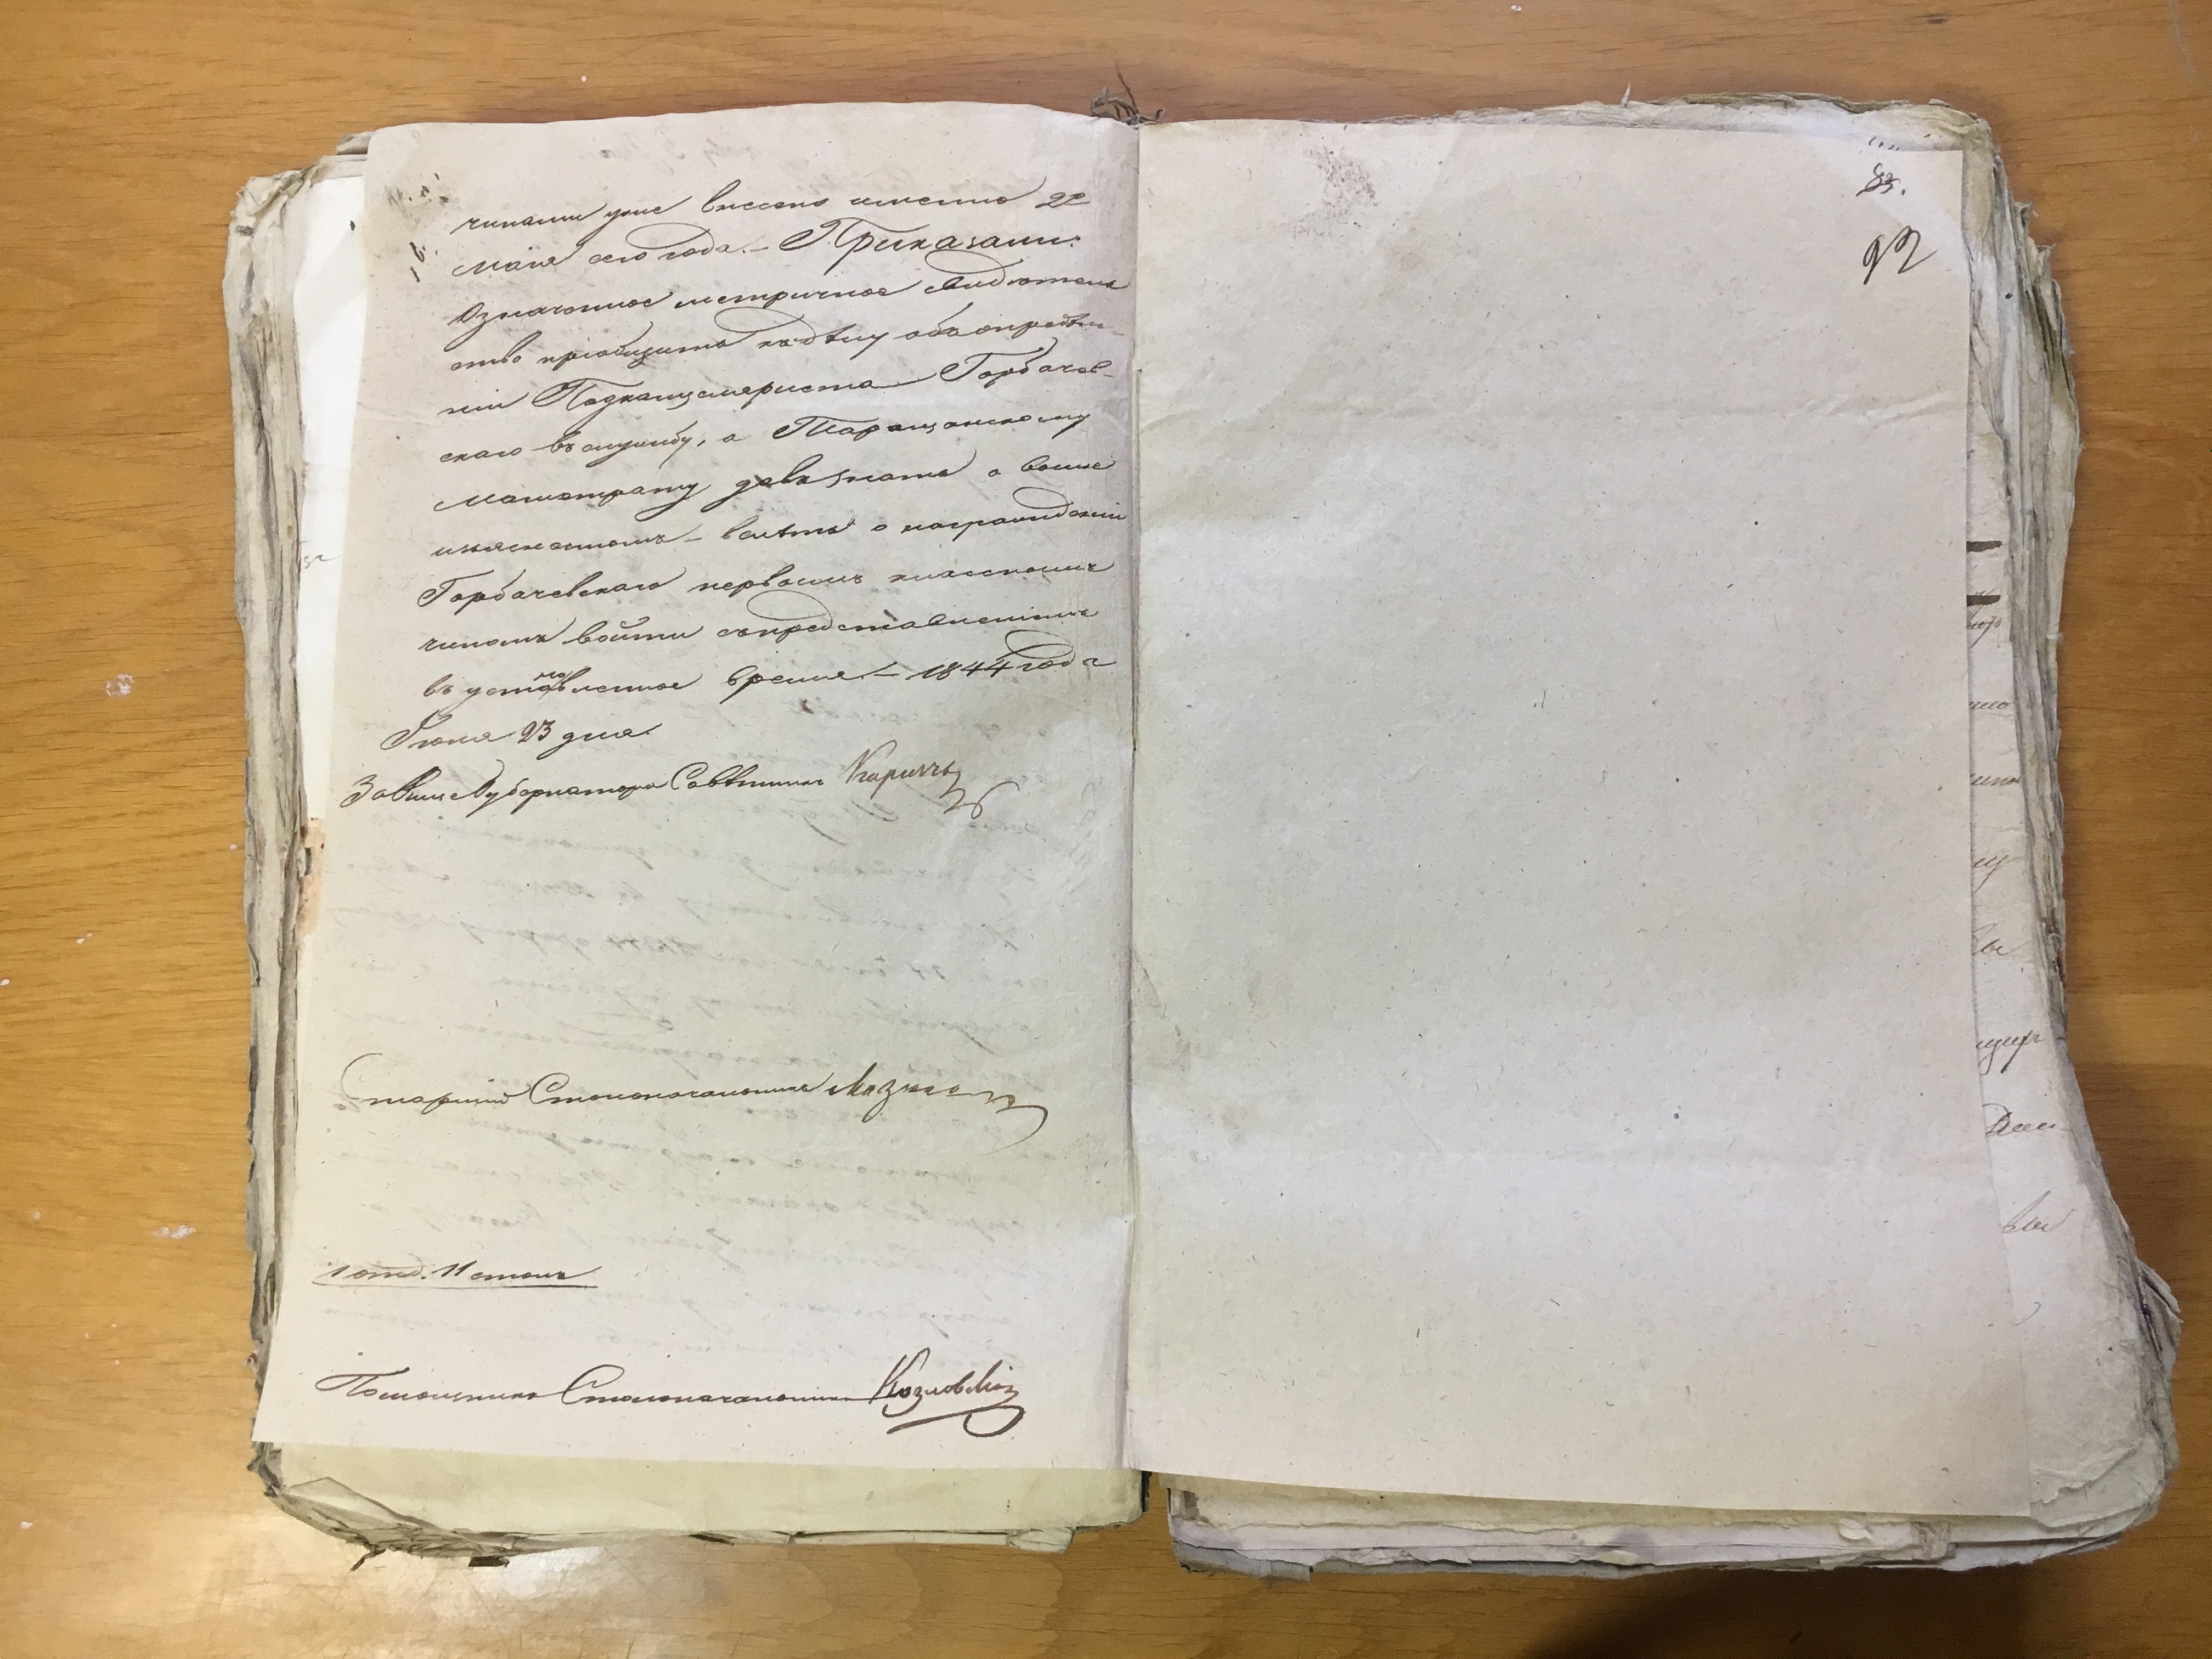 чинами уже внесено именно 2го
мая сего года. – Приказали:
Означенное метричное свидѣтель
ство пріобщить къ дѣлу объ опредѣле-
ніи Подканцеляриста Горбачев-
скаго въ службу, а Таращанскому
Магистрату дать знать о выше
изъясненномъ – велѣть о награжденіи
Горбачевскаго первымъ класснымъ
чиномъ войти съ представленіемъ
въ установленное время. – 1844 года
Іюня 23 дня.
За Вице Губернатора Совѣтникъ
Старшій Столоначальникъ
1 отд. 11 столъ
Помощникъ Столоначальника Козловскій
83.
92